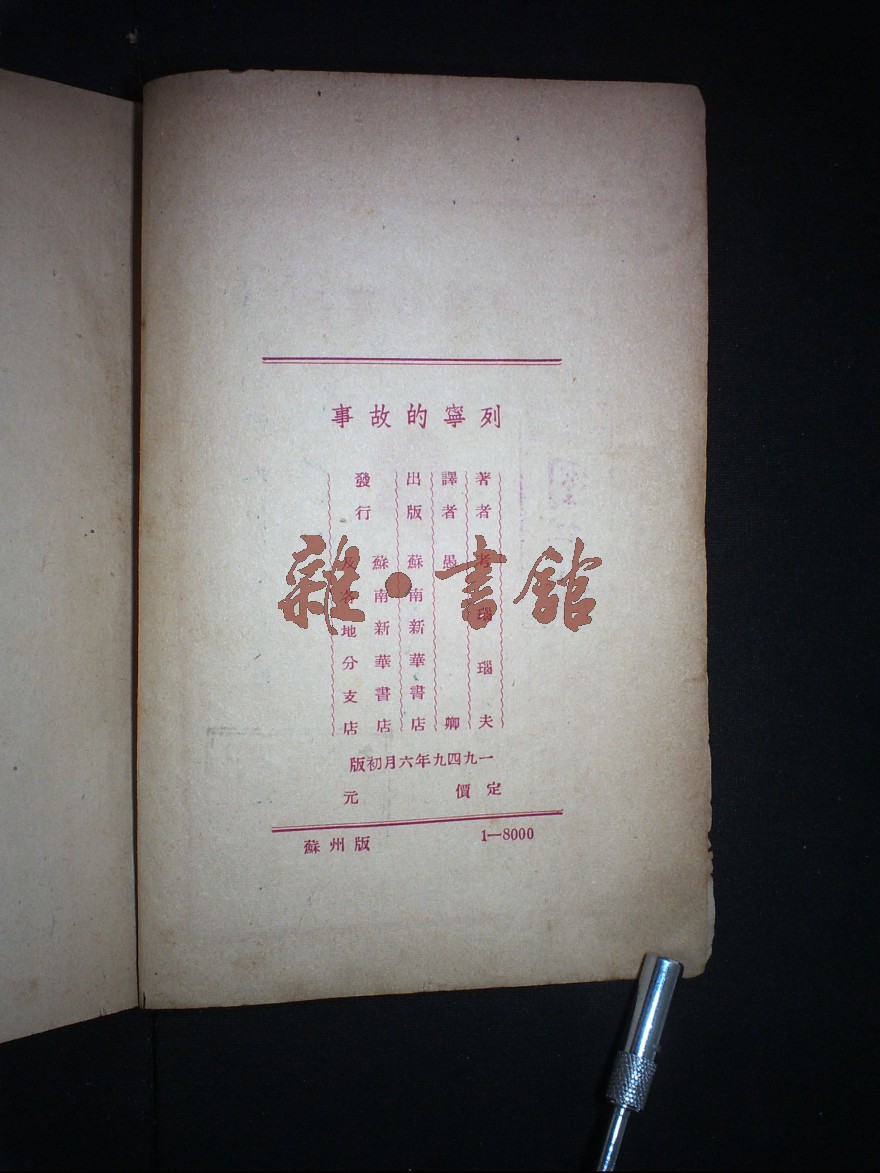 列寧的故事
著者 考瑙瑙夫
譯者 愚卿
出版 蘇南新華書店
發行 蘇南新華書店
及各地分支店
一九四九年六月初版
定價 元
蘇州版 1—8000
雜·書館